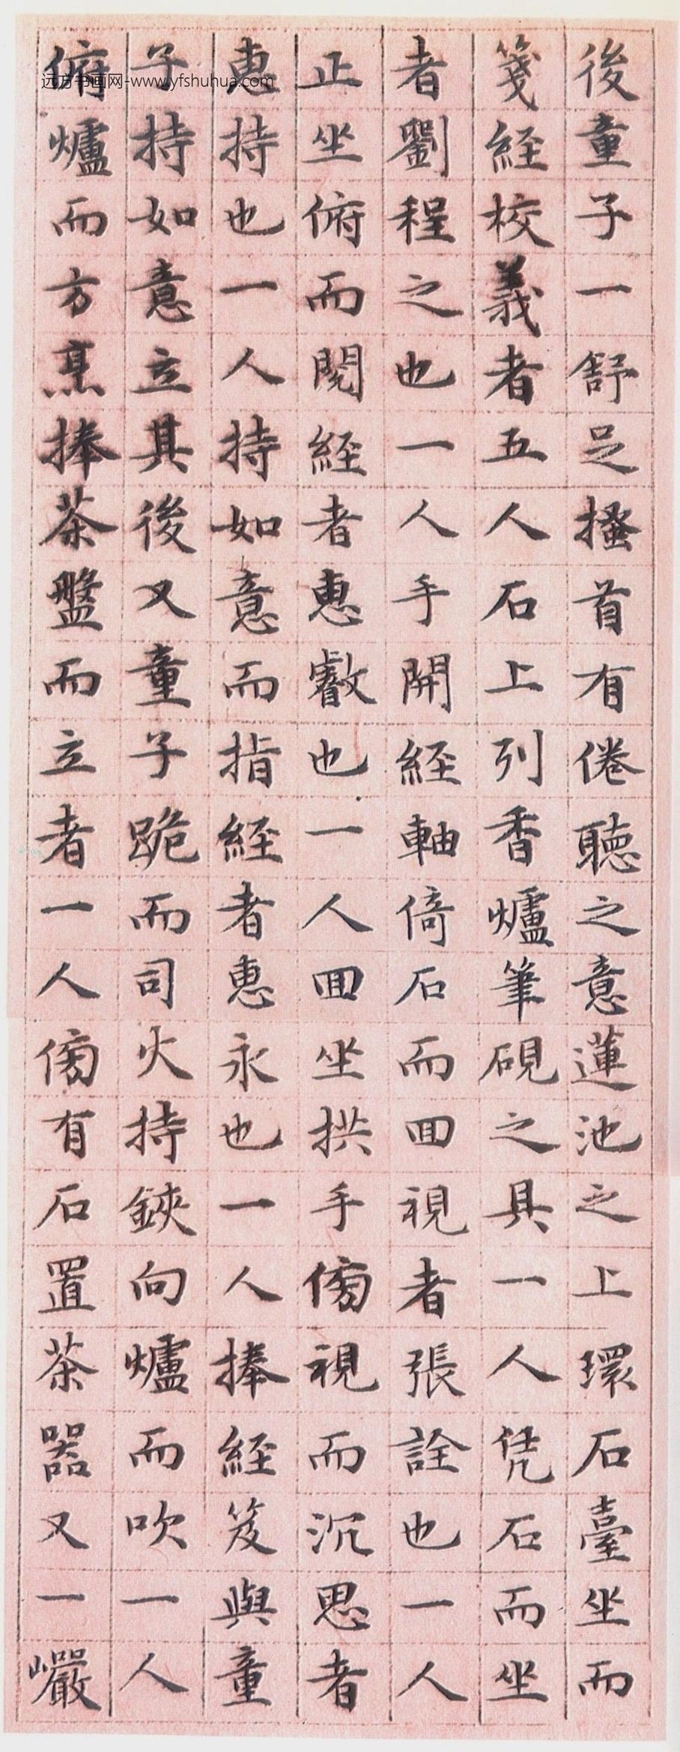 後童子一舒足搔首有倦聽之意蓮池之上環石臺坐而
箋經校義者五人石上列香爐筆硯之具一人凭石而坐
者劉程之也一人手開經軸倚石而回視者張詮也一人
正坐俯而閱經者惠叡也一人回坐拱手傍視而沉思者
惠持也一人持如意而指經者惠永也一人捧經笈與童
子持如意立其後又童子跪而司火持鋏向爐而吹一人
俯爐而方烹捧茶盤而立者一人傍有石置茶器又一巖
远方书画网-www.yfshuhua.com